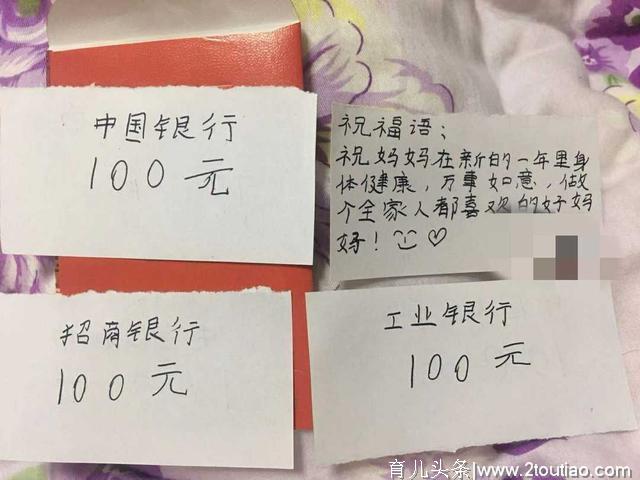 中国银行
100元
祝福语；
祝妈妈在新的一年里身
体健康，万事如意，做
个全家人都喜欢的好妈
妈！
招商银行
100元
工业银行
100元
育儿头条|www.2toutiao.com